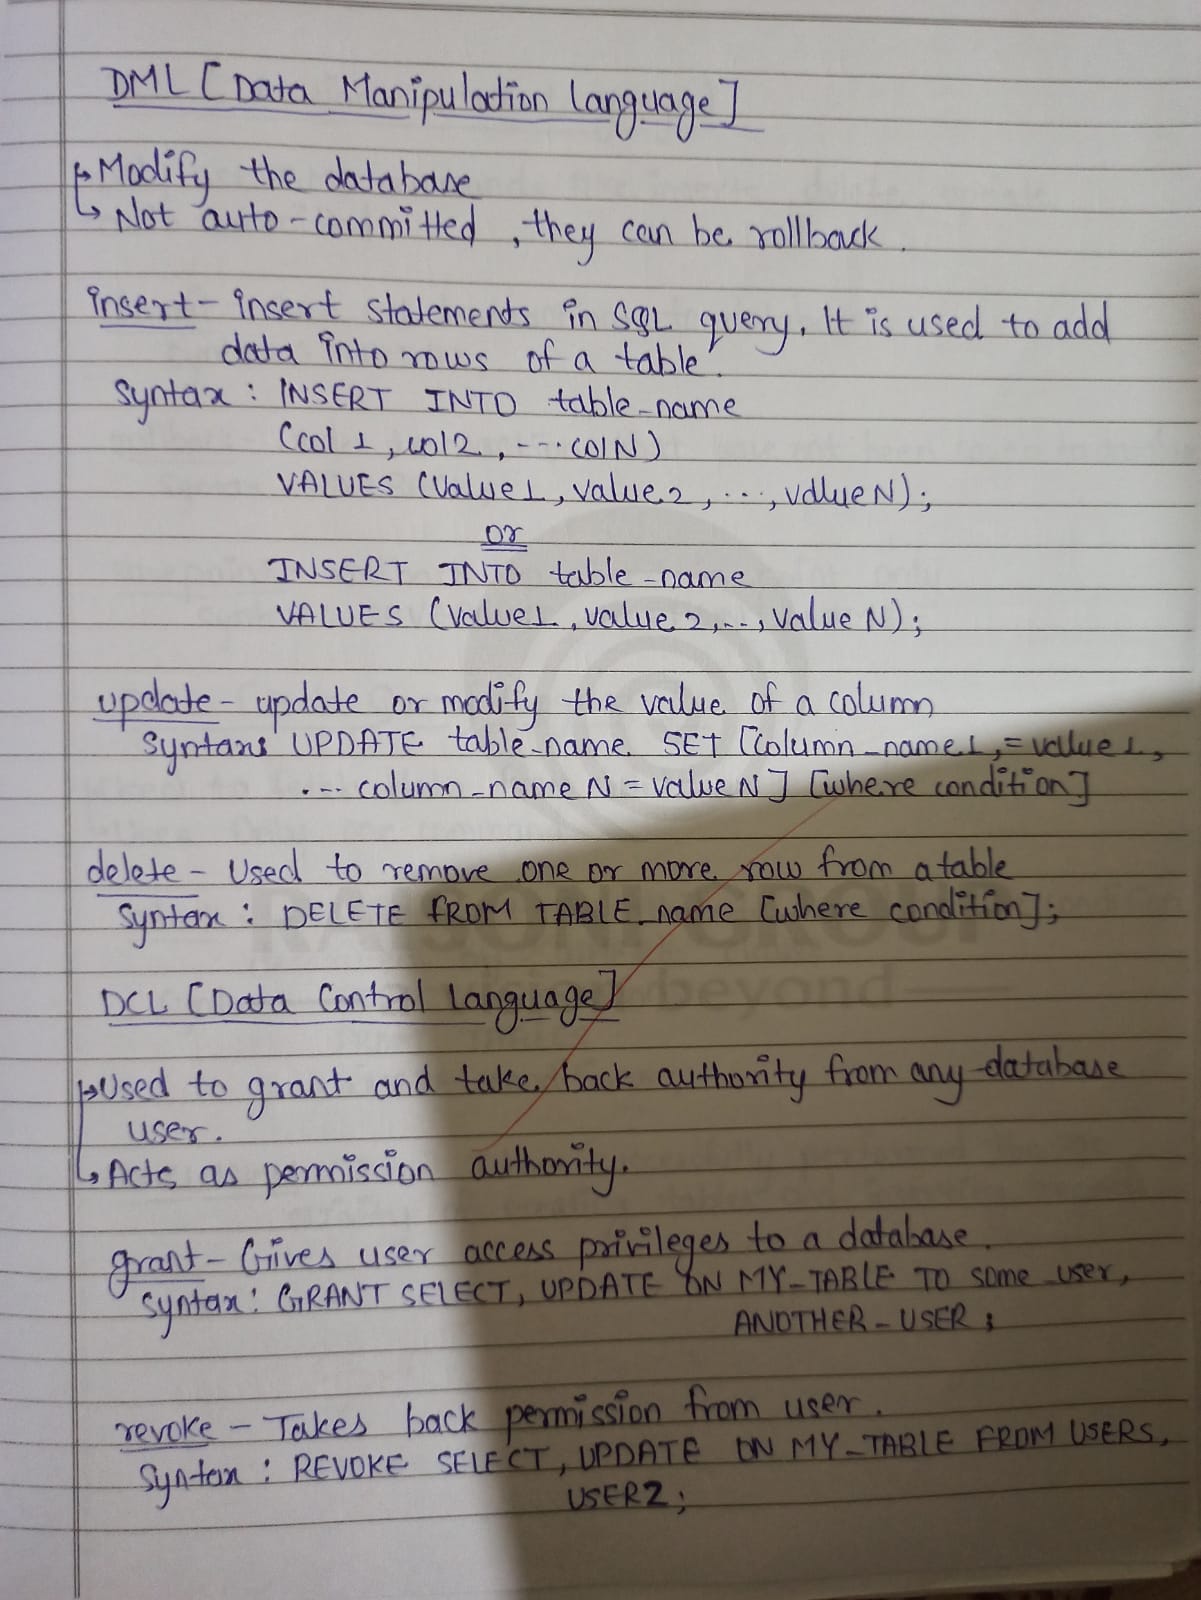 DML [Data Manipulation language]
↳ Modify the database
↳ Not auto-committed, they can be rollback.
insert - insert statements in SQL query. It is used to add
data into rows of a table.
Syntax : INSERT INTO table-name
(col 1, col2, --- colN)
VALUES (value1, value2, ..., valueN);
or
INSERT INTO table-name
VALUES (value1, value2, ..., value N);
update - update or modify the value of a column
Syntax: UPDATE table-name. SET [column-name1,=value1,
... column-name N = value N] [where condition]
delete - Used to remove one or more row from a table
Syntax : DELETE FROM TABLE_name [where condition];
DCL [Data Control Language]
↳ Used to grant and take back authority from any database
user.
↳ Acts as permission authority.
grant - Gives user access privileges to a database.
Syntax: GRANT SELECT, UPDATE ON MY-TABLE TO some_user,
ANOTHER-USER;
revoke - Takes back permission from user.
Syntax : REVOKE SELECT, UPDATE ON MY-TABLE FROM USERS,
USER2;